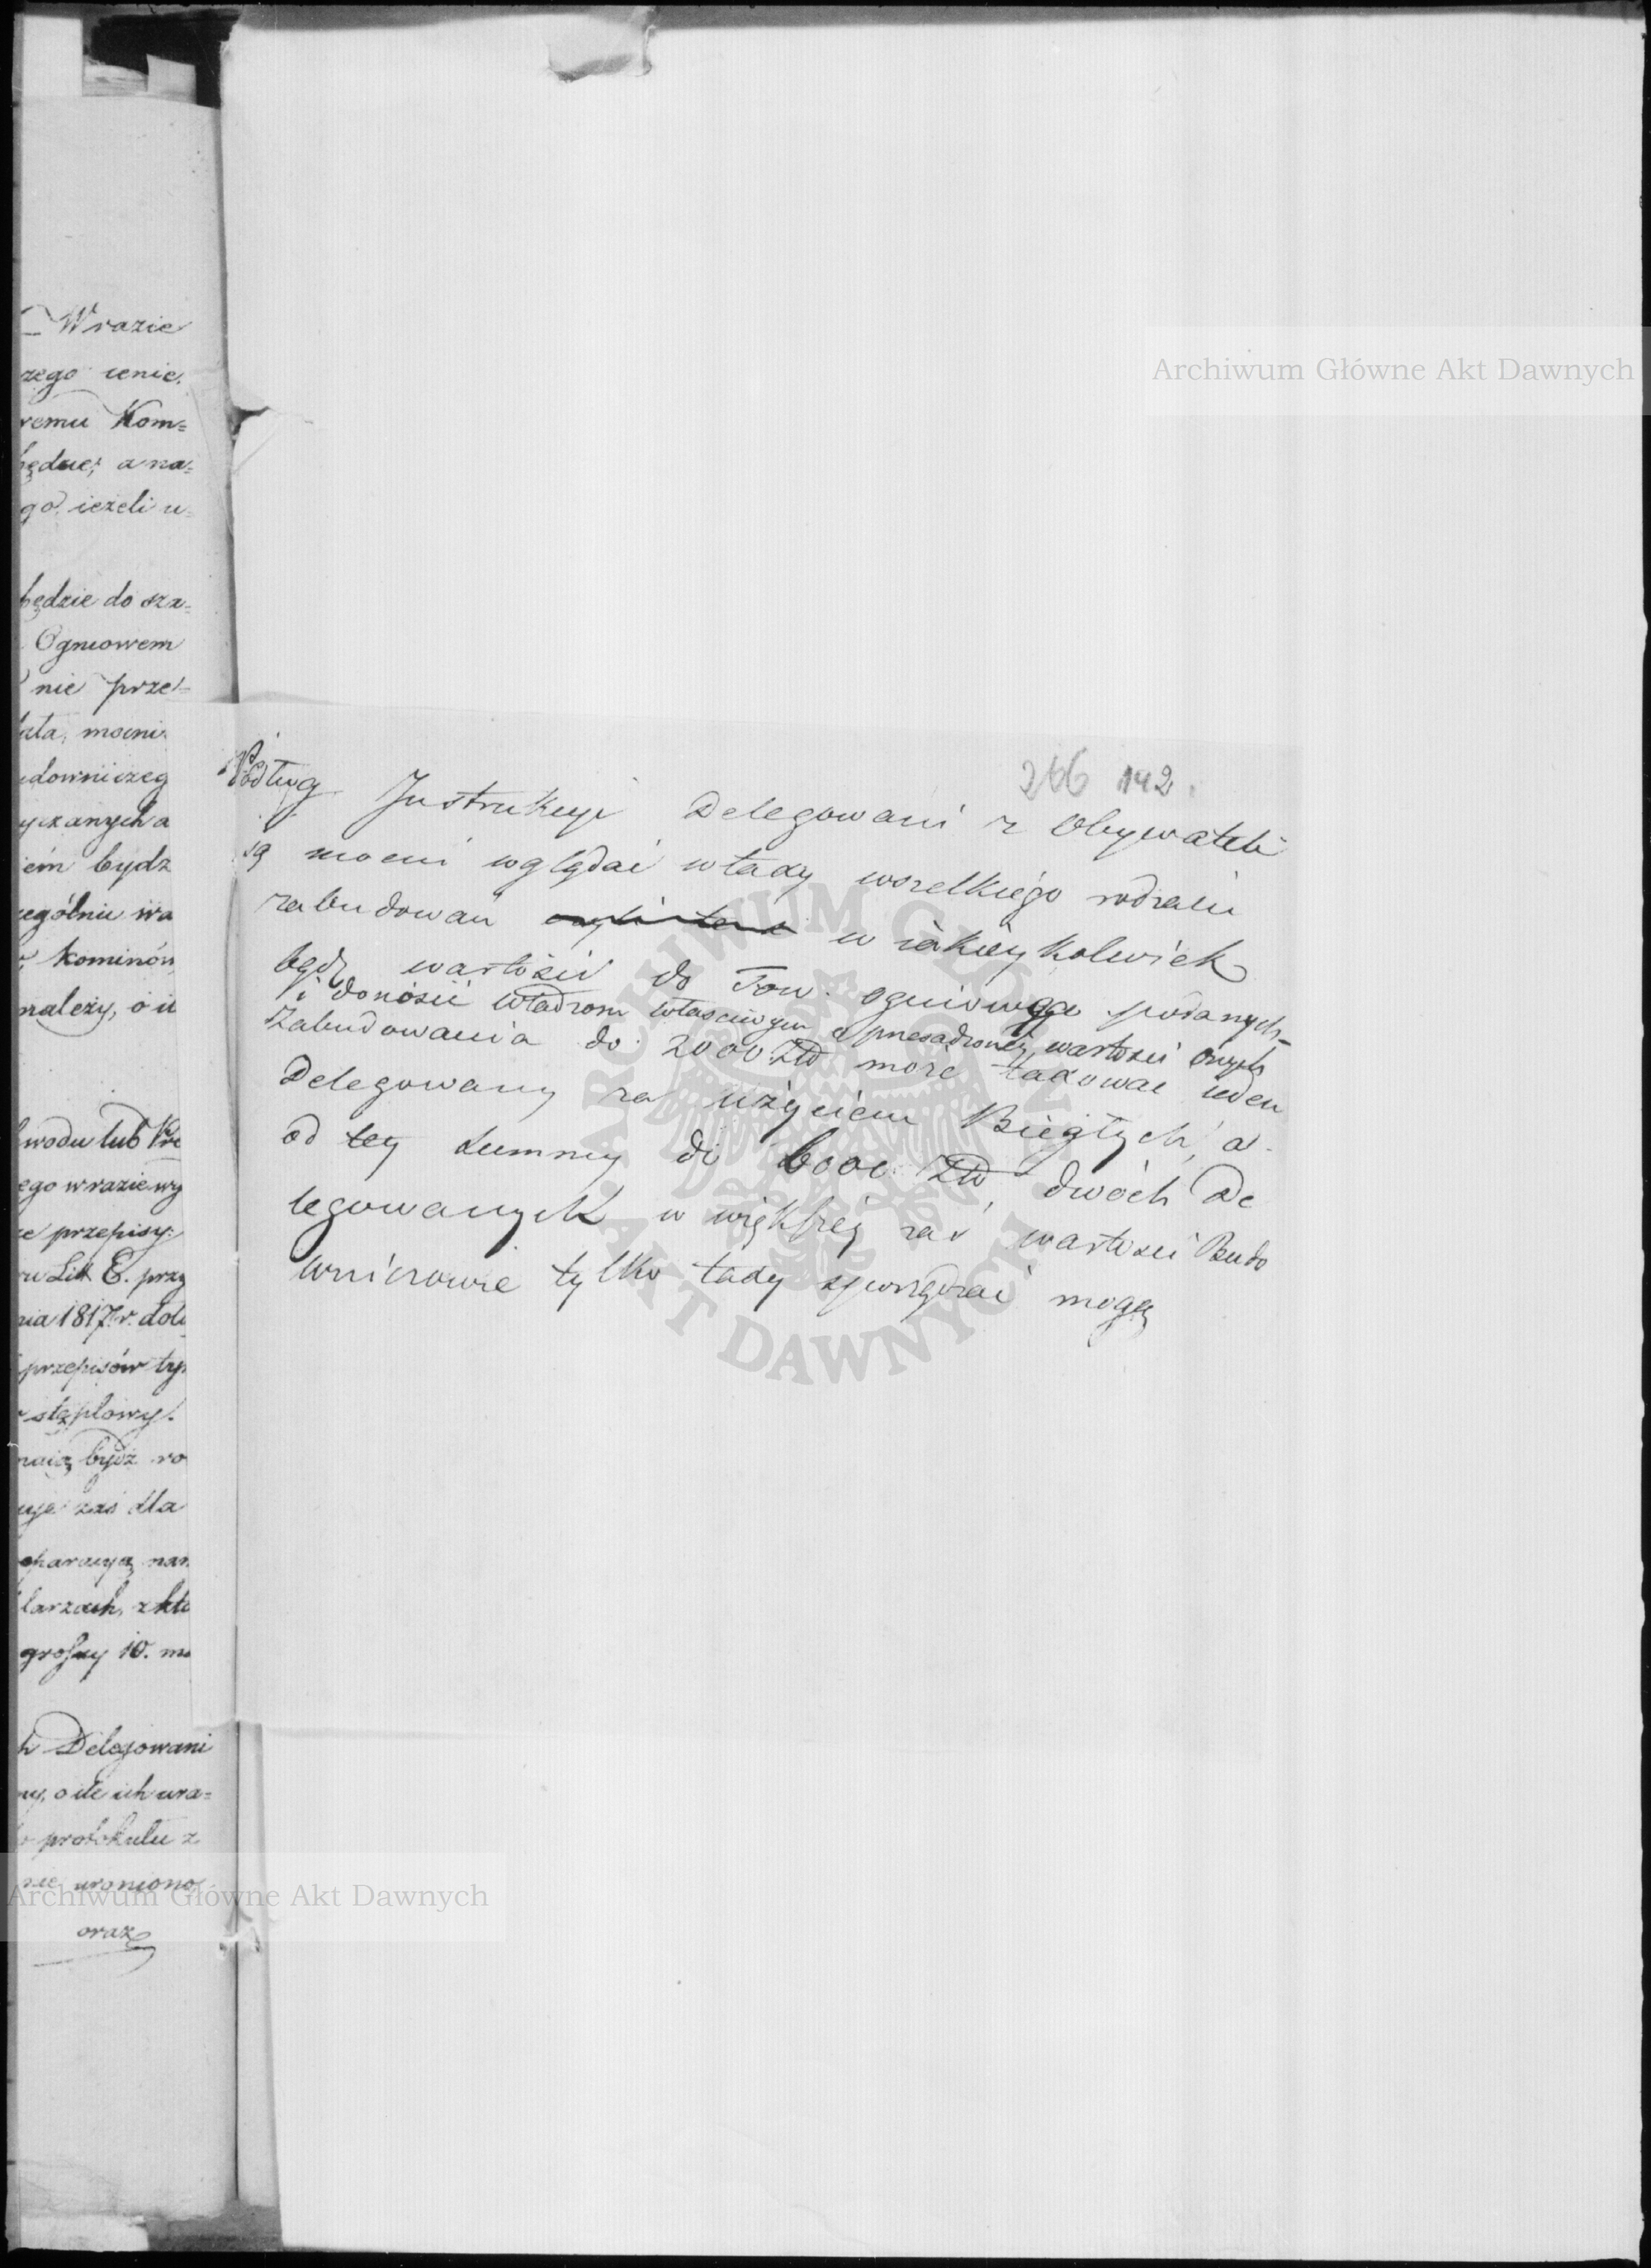 Wrazie
rzego cenie
remu Kom=
będzie; a na=
go ieżeli u=
będzie do sza=
Ogniowem
nie prze=
ata, mocni
downiczeg
yczanych a
iem bydz
zególnie wa
kominów
należy, o il
wodu lub
ego wrazie wy
ze przepisy
Lit E. przy
nia 1817 r. dołą
przepisów
stęplowy.
maią bydź ro
zaś dla
eparacyą nar
larzach, z któ
groszy 10. m
h Delegowani
ny, o ile ich ura=
protokułu z
nie uroniono
oraz
266 142.
Podług Instrukcyi Delegowani z Obywateli
są mocni wglądać w taxy wszelkiego rodzaiu
zabudowań w iakieykolwiek
bądź wartości do Tow. ogniowego podanych
i donosić Władzom własciwym o przesadzoney wartości onych
Zabudowania do 2000 Złł może taxować ieden
Delegowany za użyciem Biegłych, a
od tey summy do 6000 Złł dwóch De
legowanych w większey zaś wartości Budo
wniczowie tylko taxy sporządzać mogą
Archiwum Główne Akt Dawnych
Archiwum Główne Akt Dawnych
ARCHIWUM GŁÓWNE AKT DAWNYCH